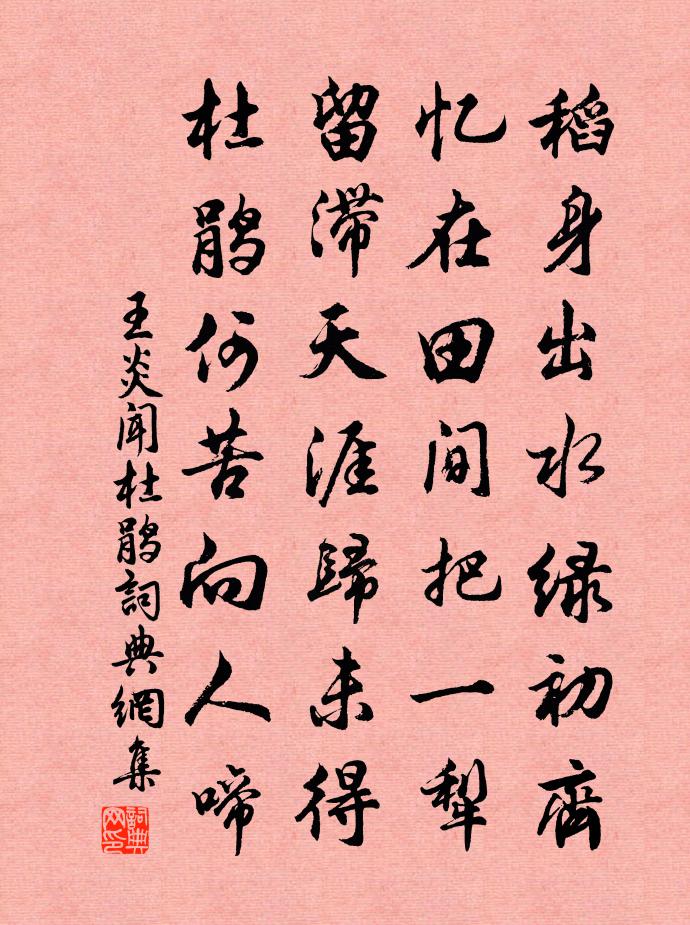 稻身出水绿初齊
忆在田间把一犁
留滞天涯歸未得
杜鹃何苦向人啼
王炎闻杜鹃詞典網集
詞典网印